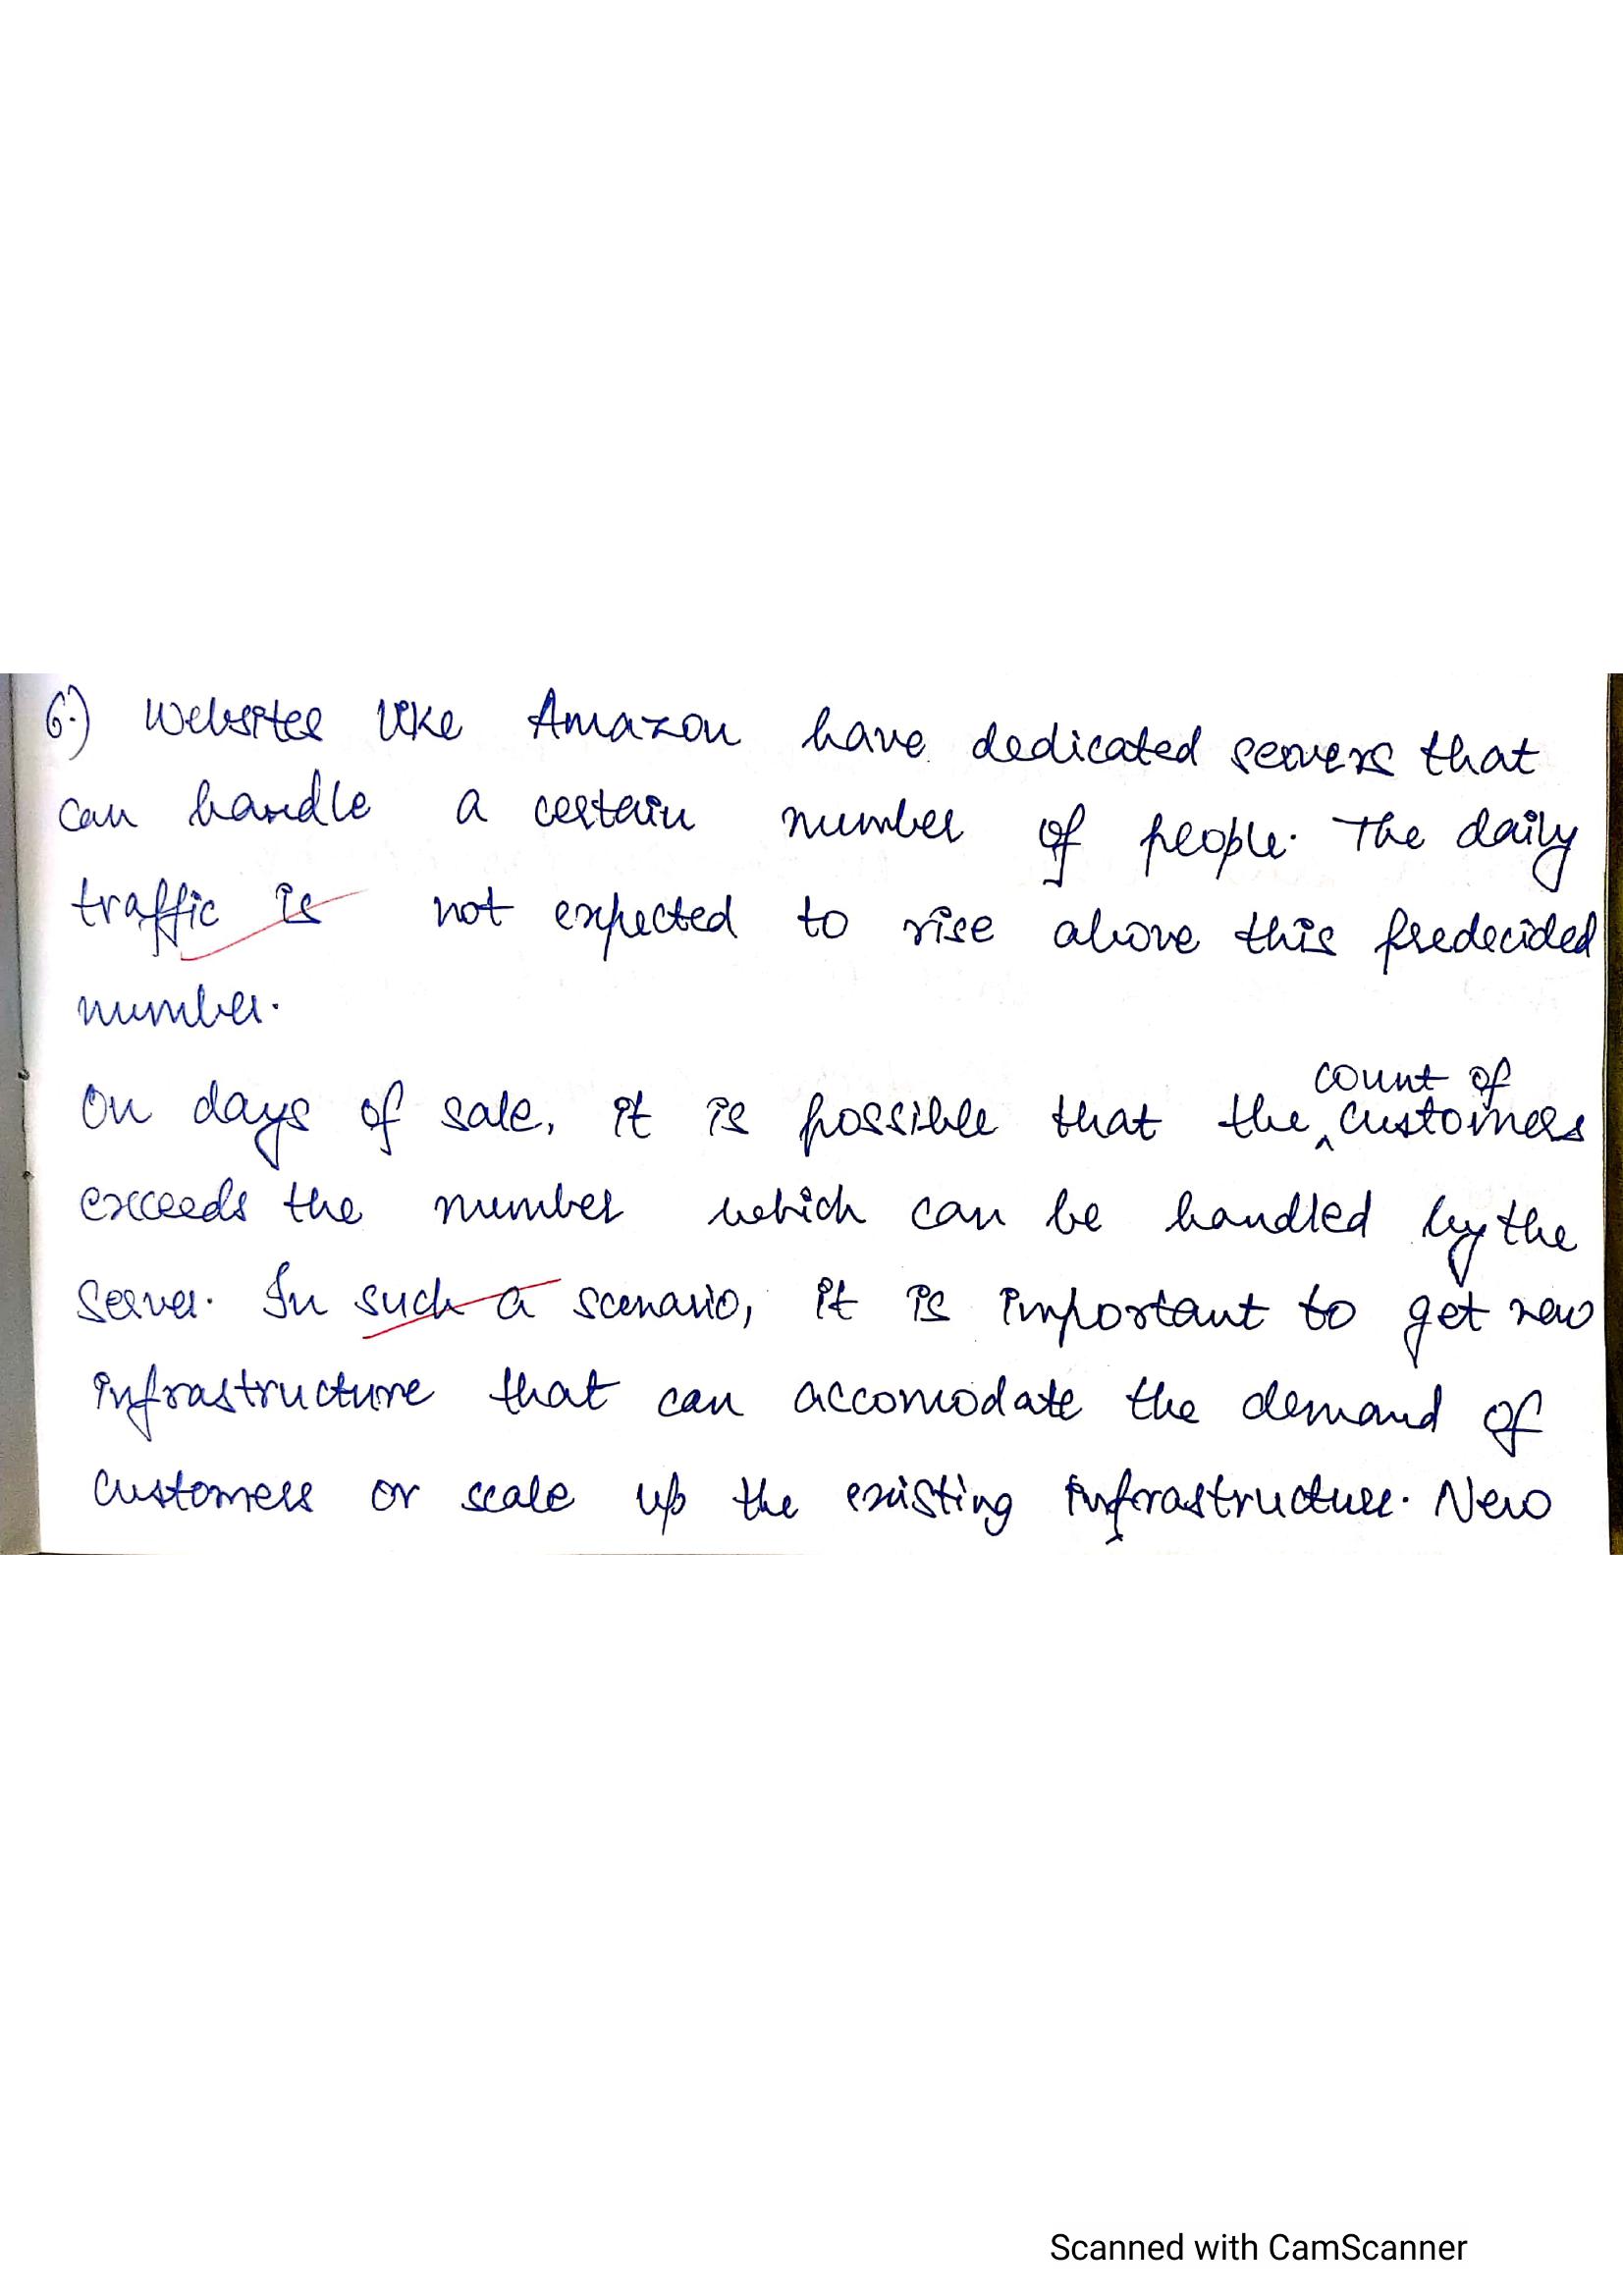 6.) Websites like Amazon have dedicated servers that
can handle a certain number of people. The daily
traffic is not expected to rise above this predecided
number.
On days of sale, it is possible that the count of customers
exceeds the number which can be handled by the
server. In such a scenario, it is important to get new
infrastructure that can accomodate the demand of
customers or scale up the existing infrastructure. New
Scanned with CamScanner